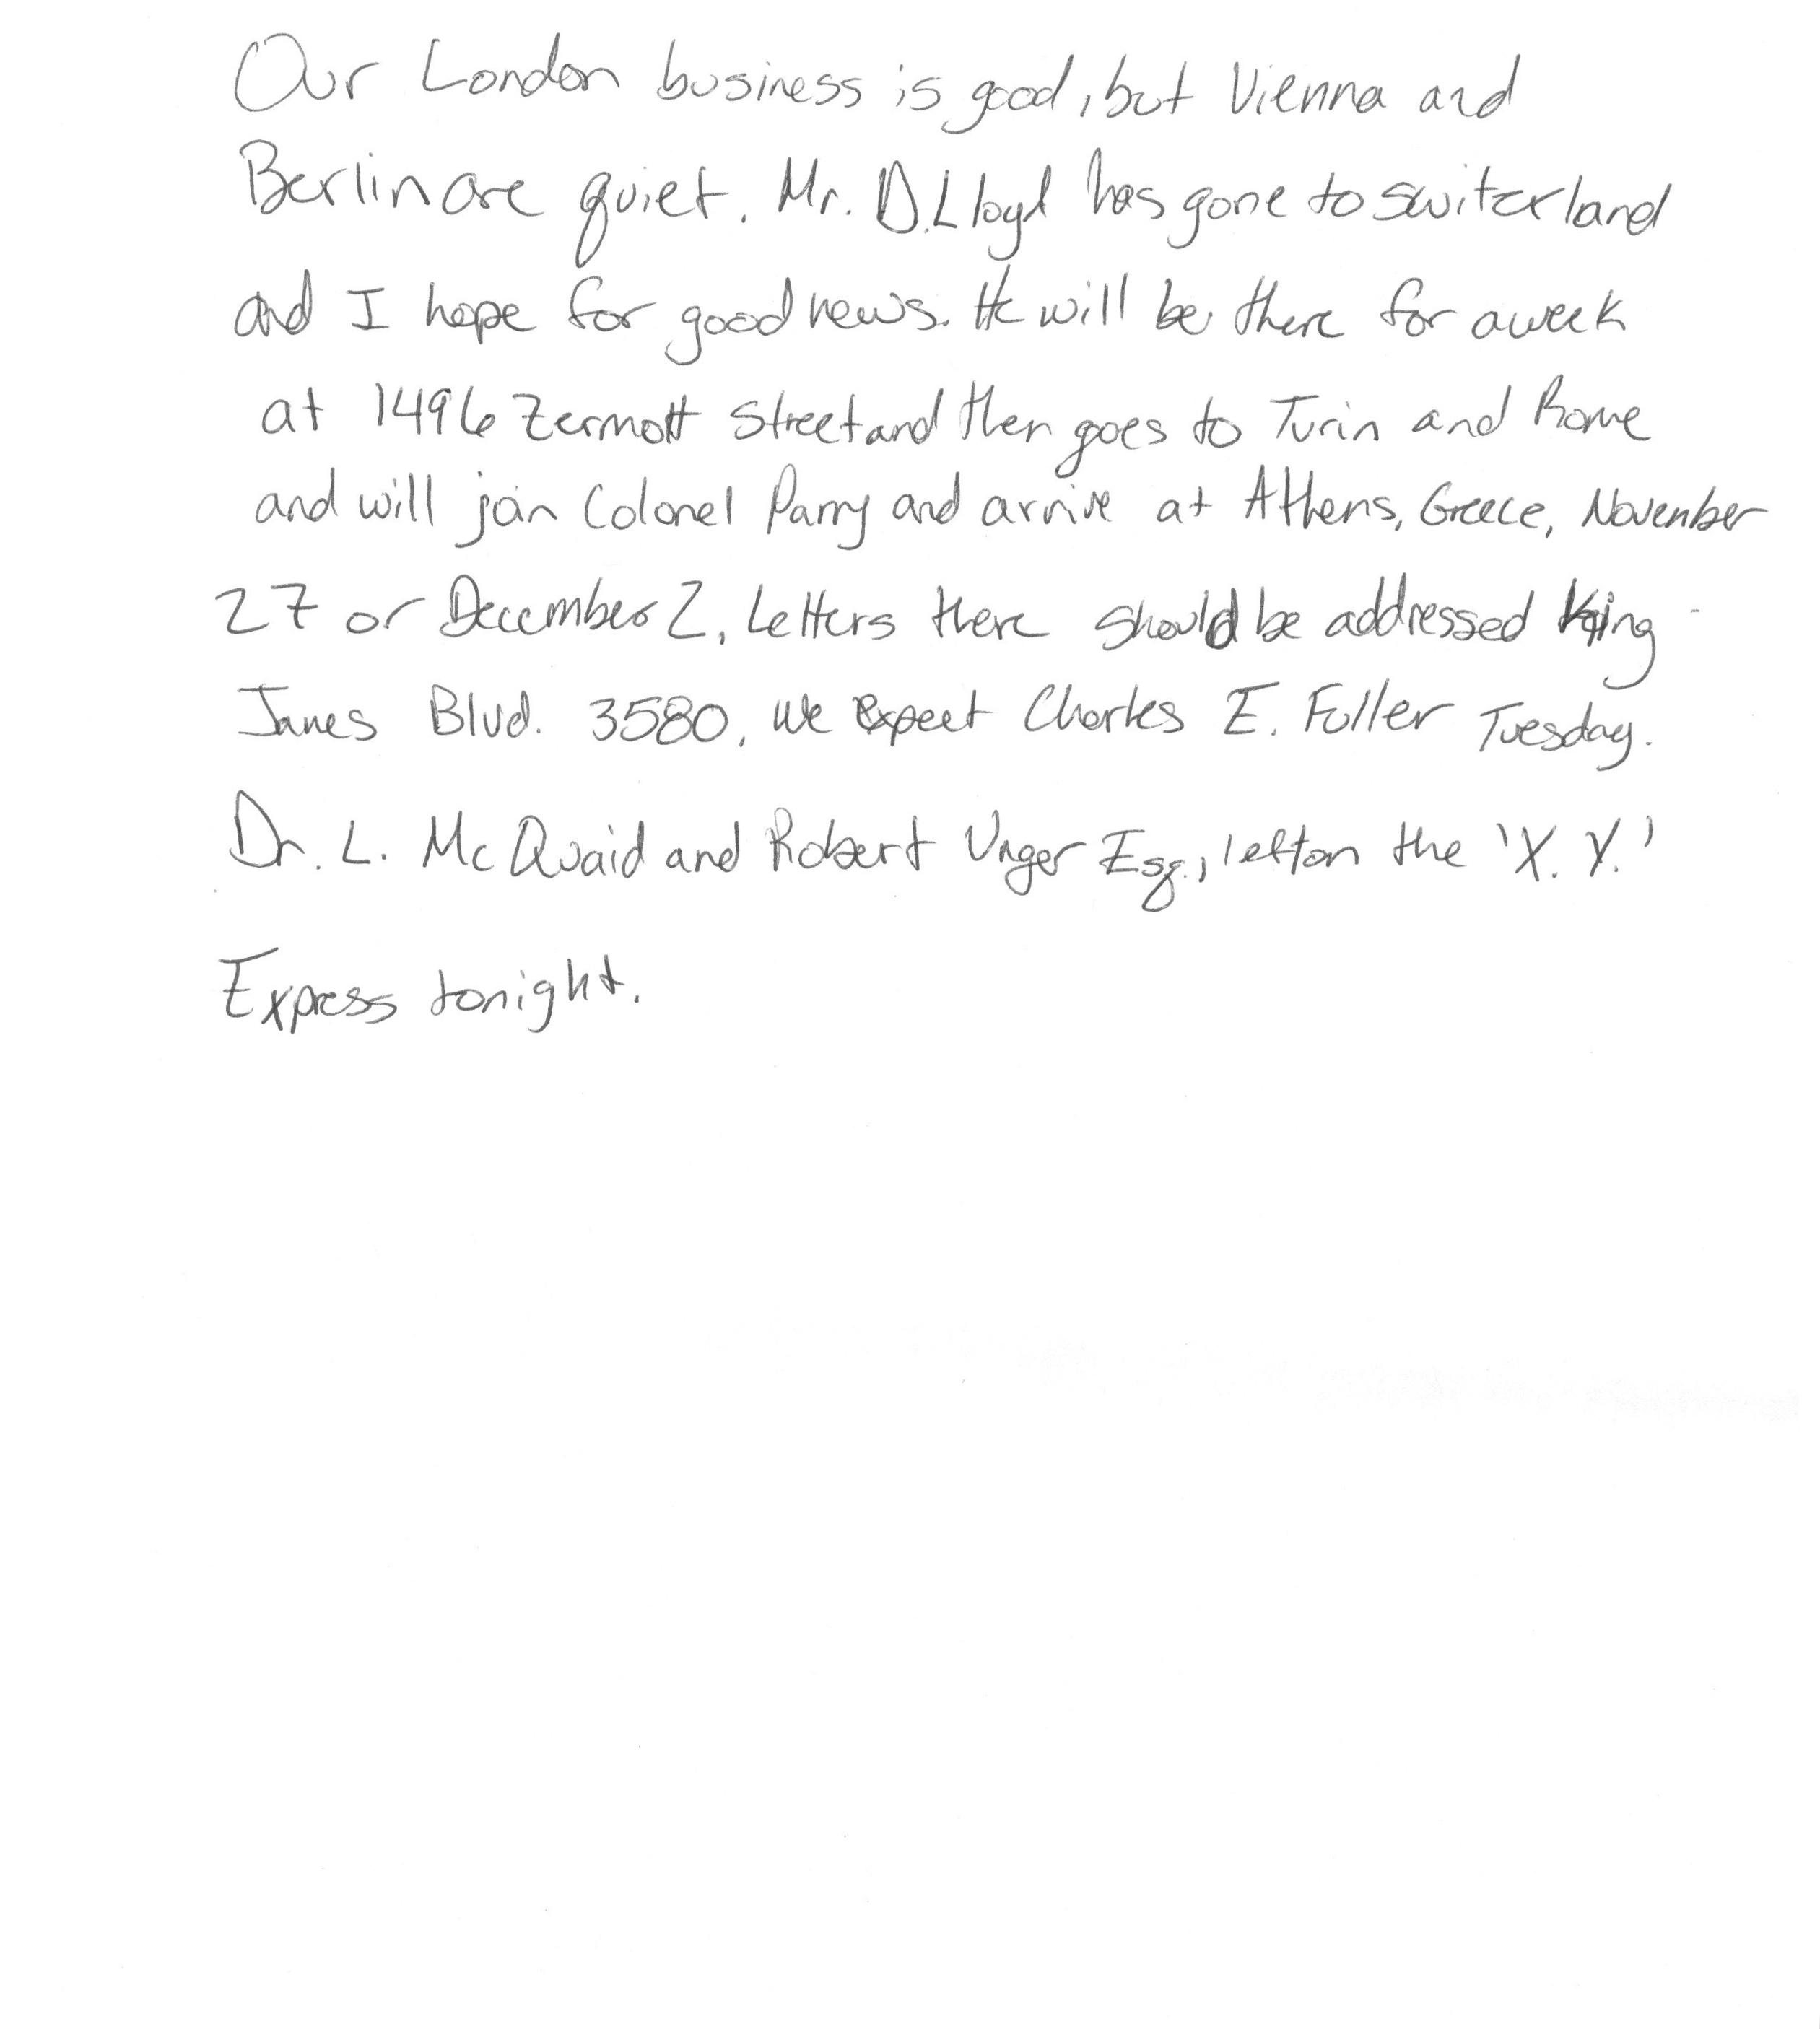 Our London business is good, but Vienna and
Berlin are quiet. Mr. D. Lloyd has gone to Switzerland
and I hope for good news. He will be there for a week
at 1496 Zermott Street and then goes to Turin and Rome
and will join Colonel Parry and arrive at Athens, Greece, November
27 or December 2. Letters there should be addressed King
James Blvd. 3580. We expect Charles E. Fuller Tuesday.
Dr. L. McQuaid and Robert Unger Esq., left on the 'X. Y.'
Express tonight.